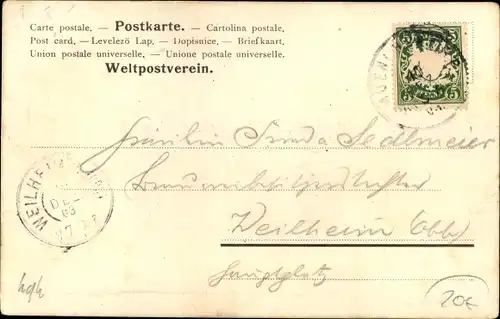 Carte postale. — Postkarte. — Cartolina postale.
Post card. — Levelező Lap. — Dopisnice. — Briefkaart.
Union postale universelle. — Unione postale universelle.
Weltpostverein.
5 5
Fräulein Frida Sedlmeier
Brauereibesitzerstochter
Weilheim (Obb)
Hauptplatz
WEILHEIM
DEZ
03
20€